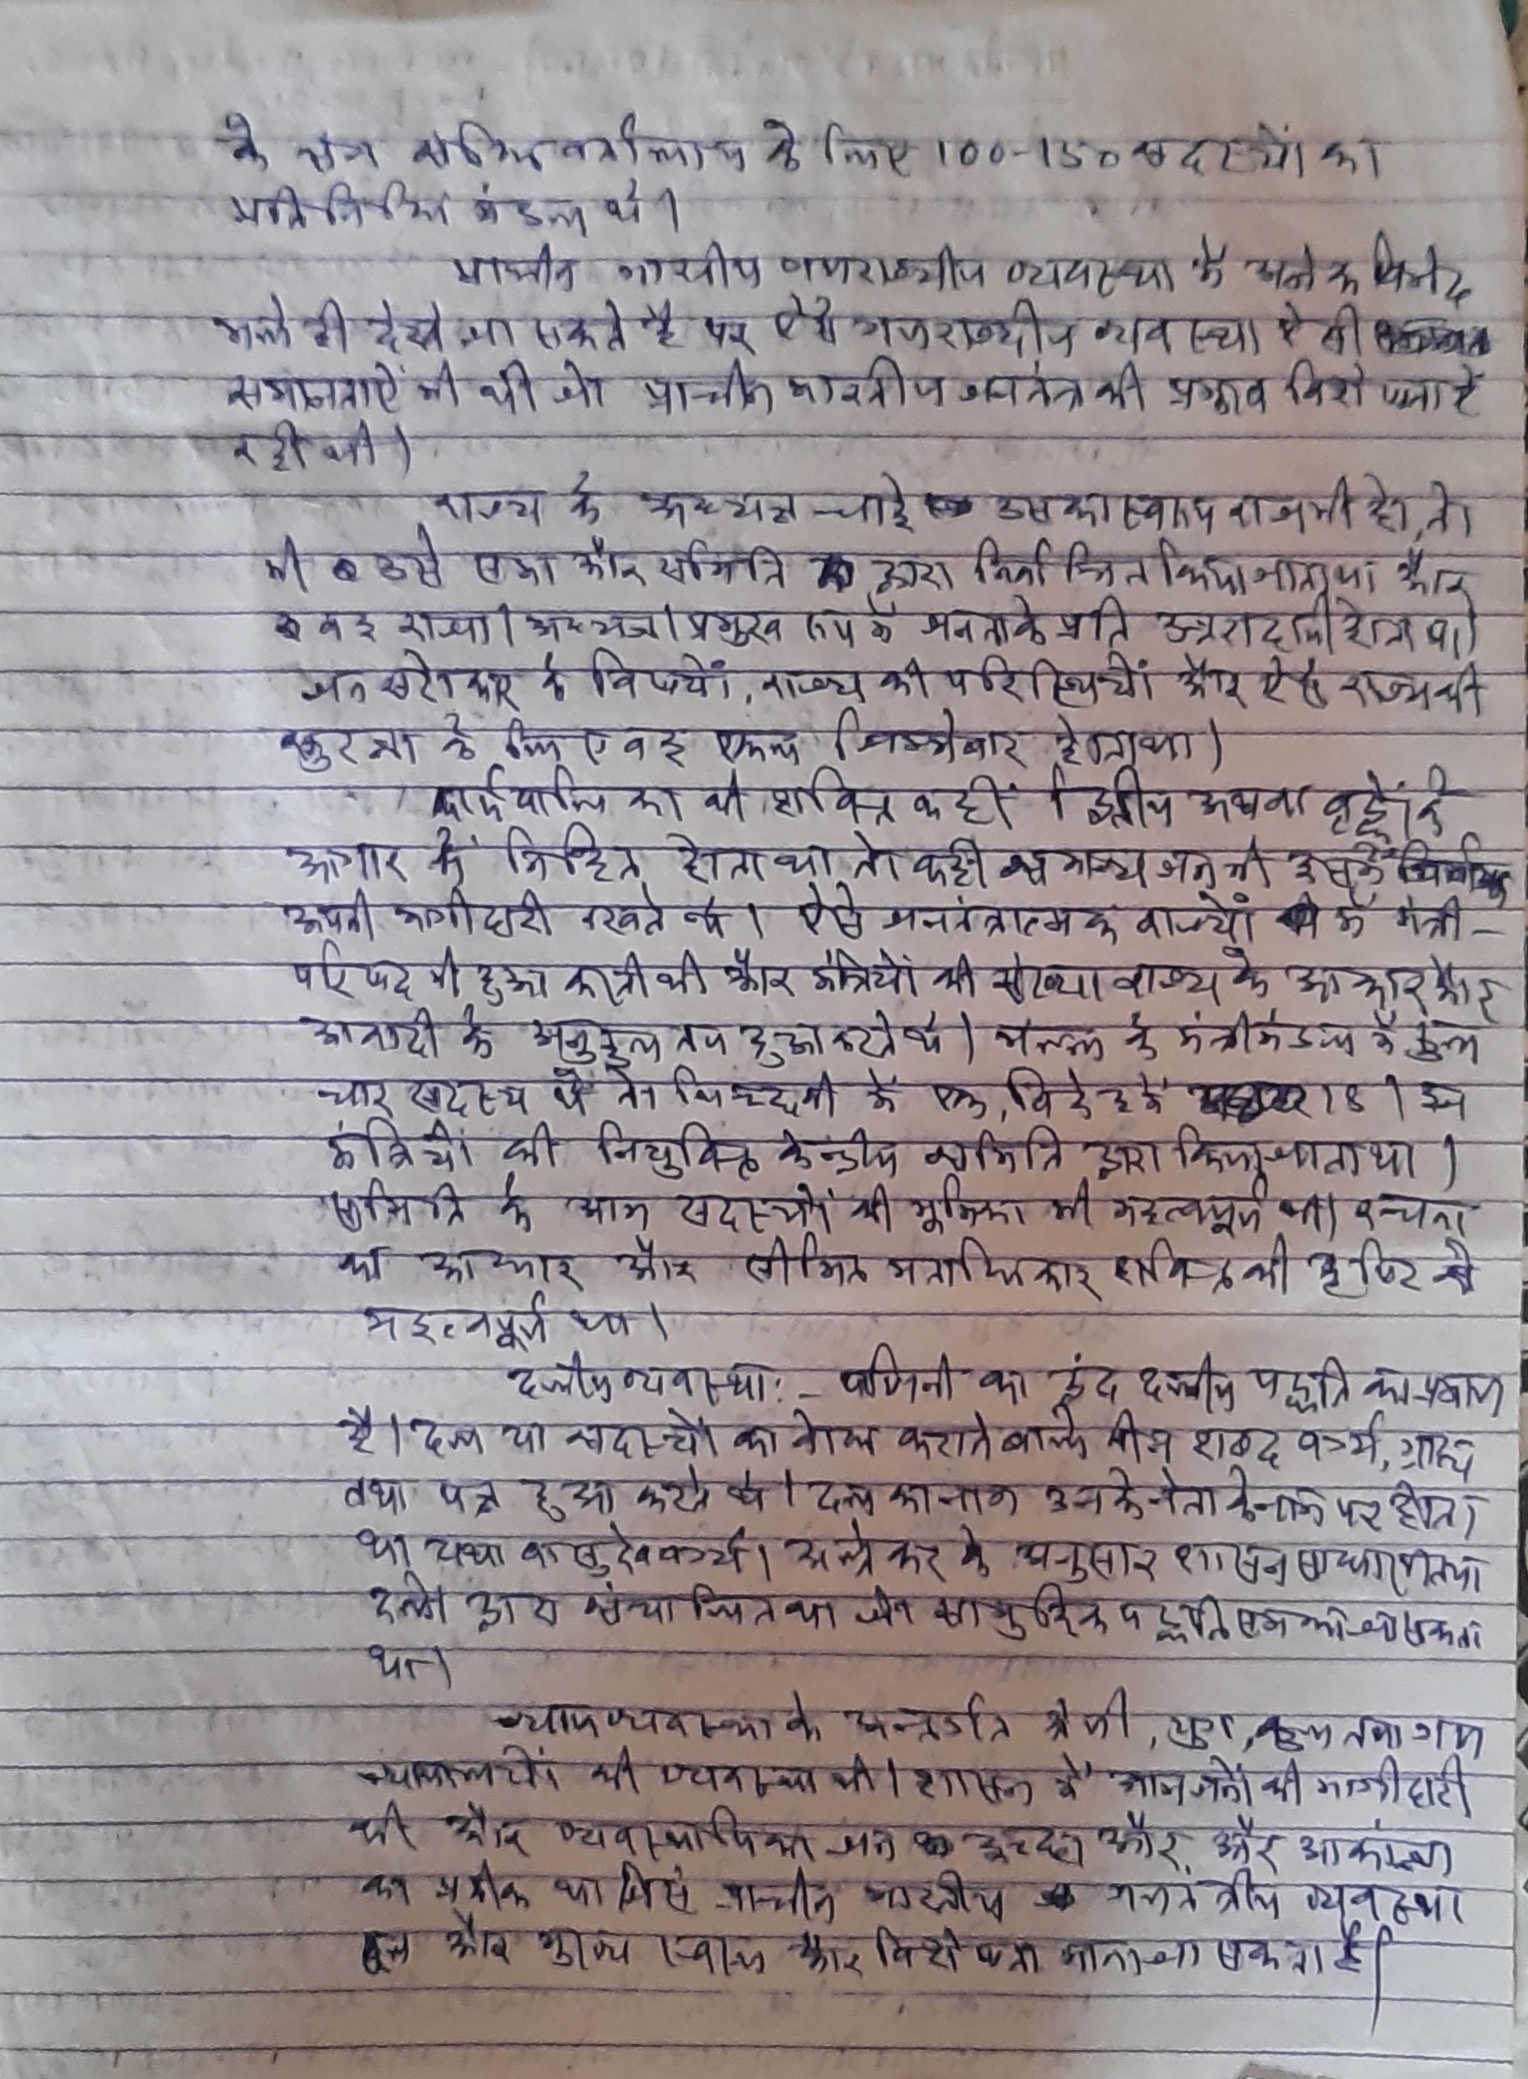 के साथ संधि वार्तालाप के लिए 100-150 सदस्यों का
प्रतिनिधि मंडल थे।
प्राचीन भारतीय गणराज्यीय व्यवस्था के अनेक विभेद
भले ही देखे जा सकते है पर ऐसे गणराज्यीय व्यवस्था ऐसी
समानताऐं भी थी जो प्राचीन भारतीय जनतंत्र की प्रमुख विशेषताऐं
रही थी।
राज्य के अध्यक्ष चाहे उसका स्वरूप राजसी हो, तो
भी उसे सभा और समिति द्वारा निर्वाचित किया जाता था और
वह राजा। अध्यक्ष। प्रमुख रूप से जनता के प्रति उत्तरादायी होता था।
जन सरोकार के विषयों, राज्य की परिस्थियों और ऐसे राज्य की
सुरक्षा के लिए वह जिम्मेवार होता था।
कार्यपालिका की शक्ति कहीं अथवा वृद्धों के
आगार में निहित होता था, तो कहीं सामान्य जन भी उसमें
अपनी भागीदारी रखते थे। ऐसे जनतंत्रात्मक राज्यों में मंत्री-
परिषद भी हुआ करती थी और मंत्रियों की संख्या राज्य के आकार और
आबादी के अनुकूल तय हुआ करते थे। मल्ल के मंत्रीमंडल में कुल
चार सदस्य थे तो लिच्छवी में विदेह में 18। इन
मंत्रियों की नियुक्ति केन्द्रीय समिति द्वारा किया जाता था।
समिति के आम सदस्यों की भूमिका भी महत्वपूर्ण थी। रचना
का आकार और सीमित मताधिकार शक्ति की दृष्टि से
महत्वपूर्ण था।
दलीय व्यवस्था:- पाणिनी का द्वंद दलीय पद्धति का प्रमाण
है। दल या सदस्यों का बोध कराने वाले तीन शब्द वर्ग्य, ग्राह्य
तथा पक्ष हुआ करते थे। दल का नाम उसके नेता के नाम पर होता
था यथा वासुदेव वर्ग्य। अल्तेकर के अनुसार शासन
दलों द्वारा संचालित था जो सामुहिक पद्धति का
था।
न्याय व्यवस्था के अन्तर्गत श्रेणी, पुग, कुल तथा गण
न्यायालयों की व्यवस्था थी। शासन में आम जनों की भागीदारी
थी और व्यवस्थापिका जन इच्छा और, और आकांक्षा
का प्रतीक था जिसे प्राचीन भारतीय गणतंत्रीय व्यवस्था
मूल और मुख्य स्वरूप और विशेषता माना जा सकता है।